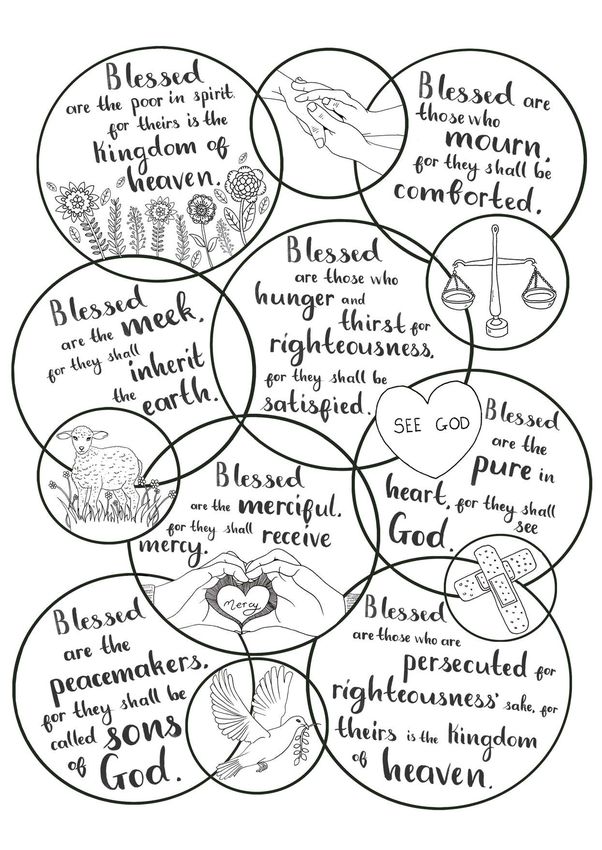 Blessed
are the poor in spirit,
for theirs is the
kingdom of
heaven.
Blessed are
those who
mourn,
for they shall be
comforted.
Blessed
are the meek,
for they shall
inherit
the
earth.
Blessed
are those who
hunger and
thirst for
righteousness,
for they shall be
satisfied.
SEE GOD
Blessed
are the
pure in
heart, for they shall
see
God.
Blessed
are the merciful,
for they shall receive
mercy.
Mercy
Blessed
are the
peacemakers,
for they shall be
called sons
of God.
Blessed
are those who are
persecuted for
righteousness' sake, for
theirs is the kingdom
of heaven.